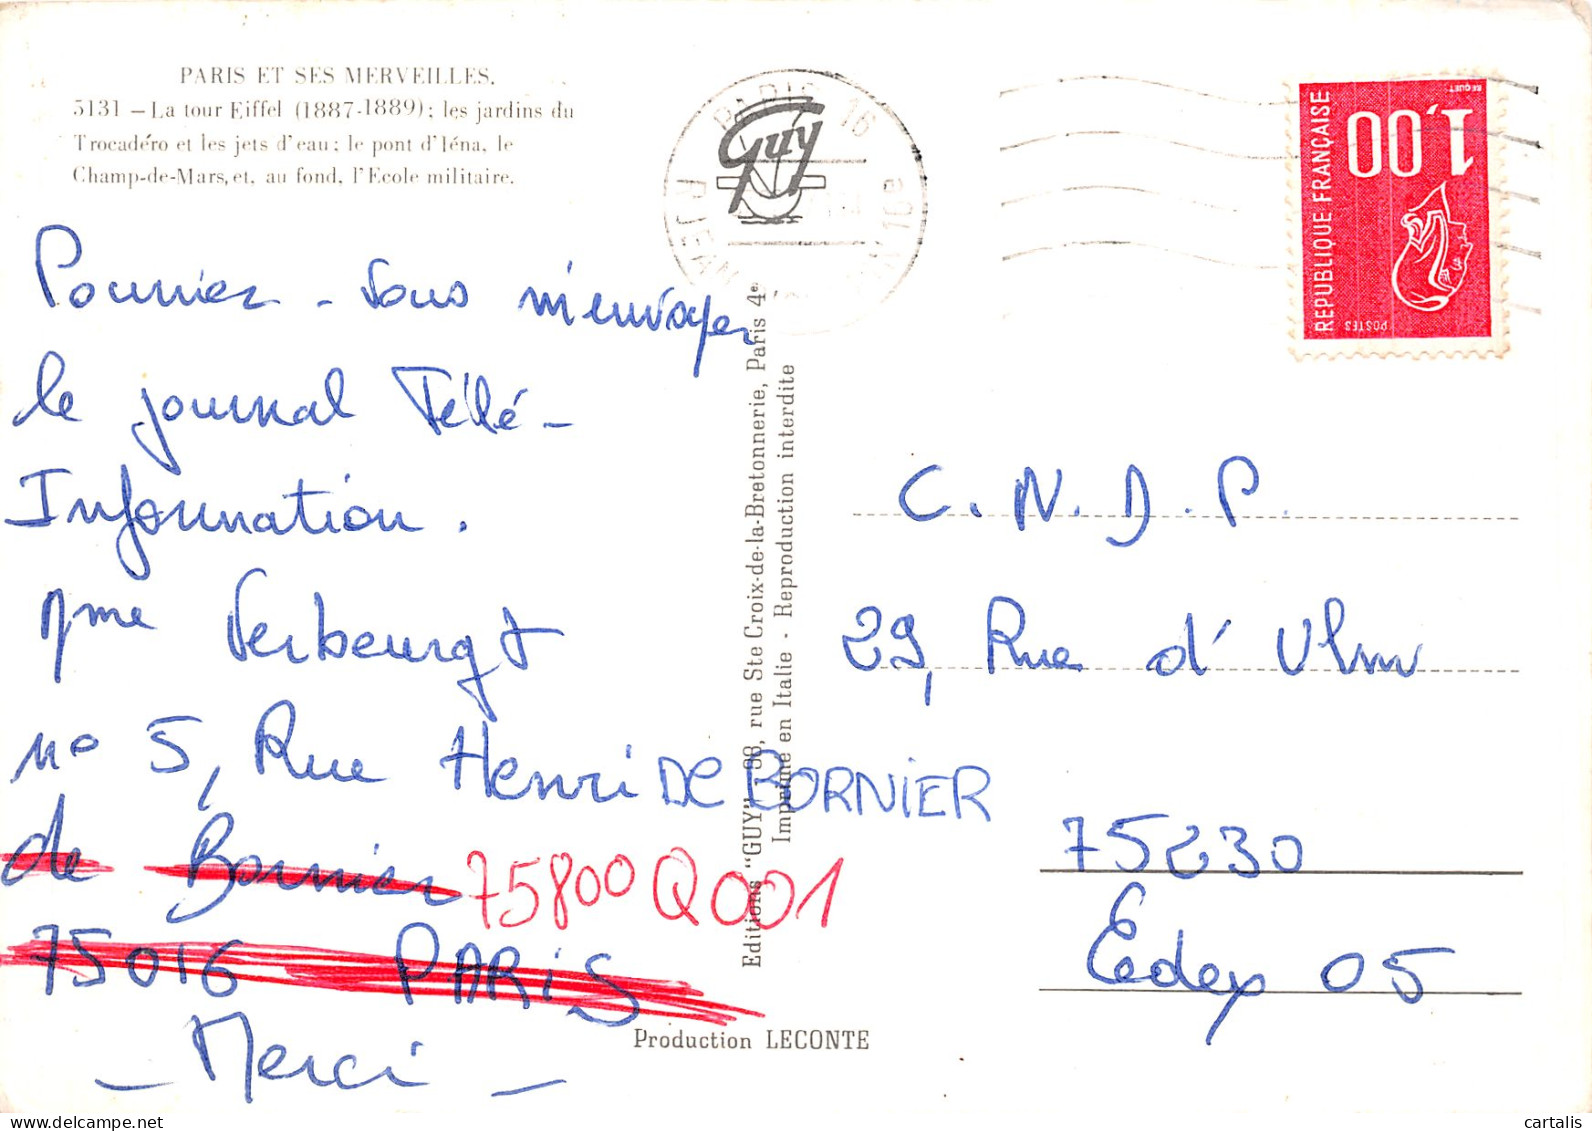 PARIS ET SES MERVEILLES.
5131 – La tour Eiffel (1887-1889); les jardins du
Trocadéro et les jets d'eau; le pont d'Iéna, le
Champ-de-Mars, et, au fond, l'Ecole militaire.
Pourriez - vous m'envoyer
le journal Télé-
Information.
Mme Verbeurgt
n° 5, Rue Henri DE BORNIER
de Bornier 75800 Q001
75016 PARIS
- Merci -
PARIS 16
Guy
Editions "GUY" - 98, rue Ste Croix-de-la-Bretonnerie, Paris 4e
Imprimé en Italie - Reproduction interdite
Production LECONTE
BEQUET
1,00
REPUBLIQUE FRANÇAISE
POSTES
C.N.D.P.
29, Rue d'Ulm
75230
Cedex 05
cartalis